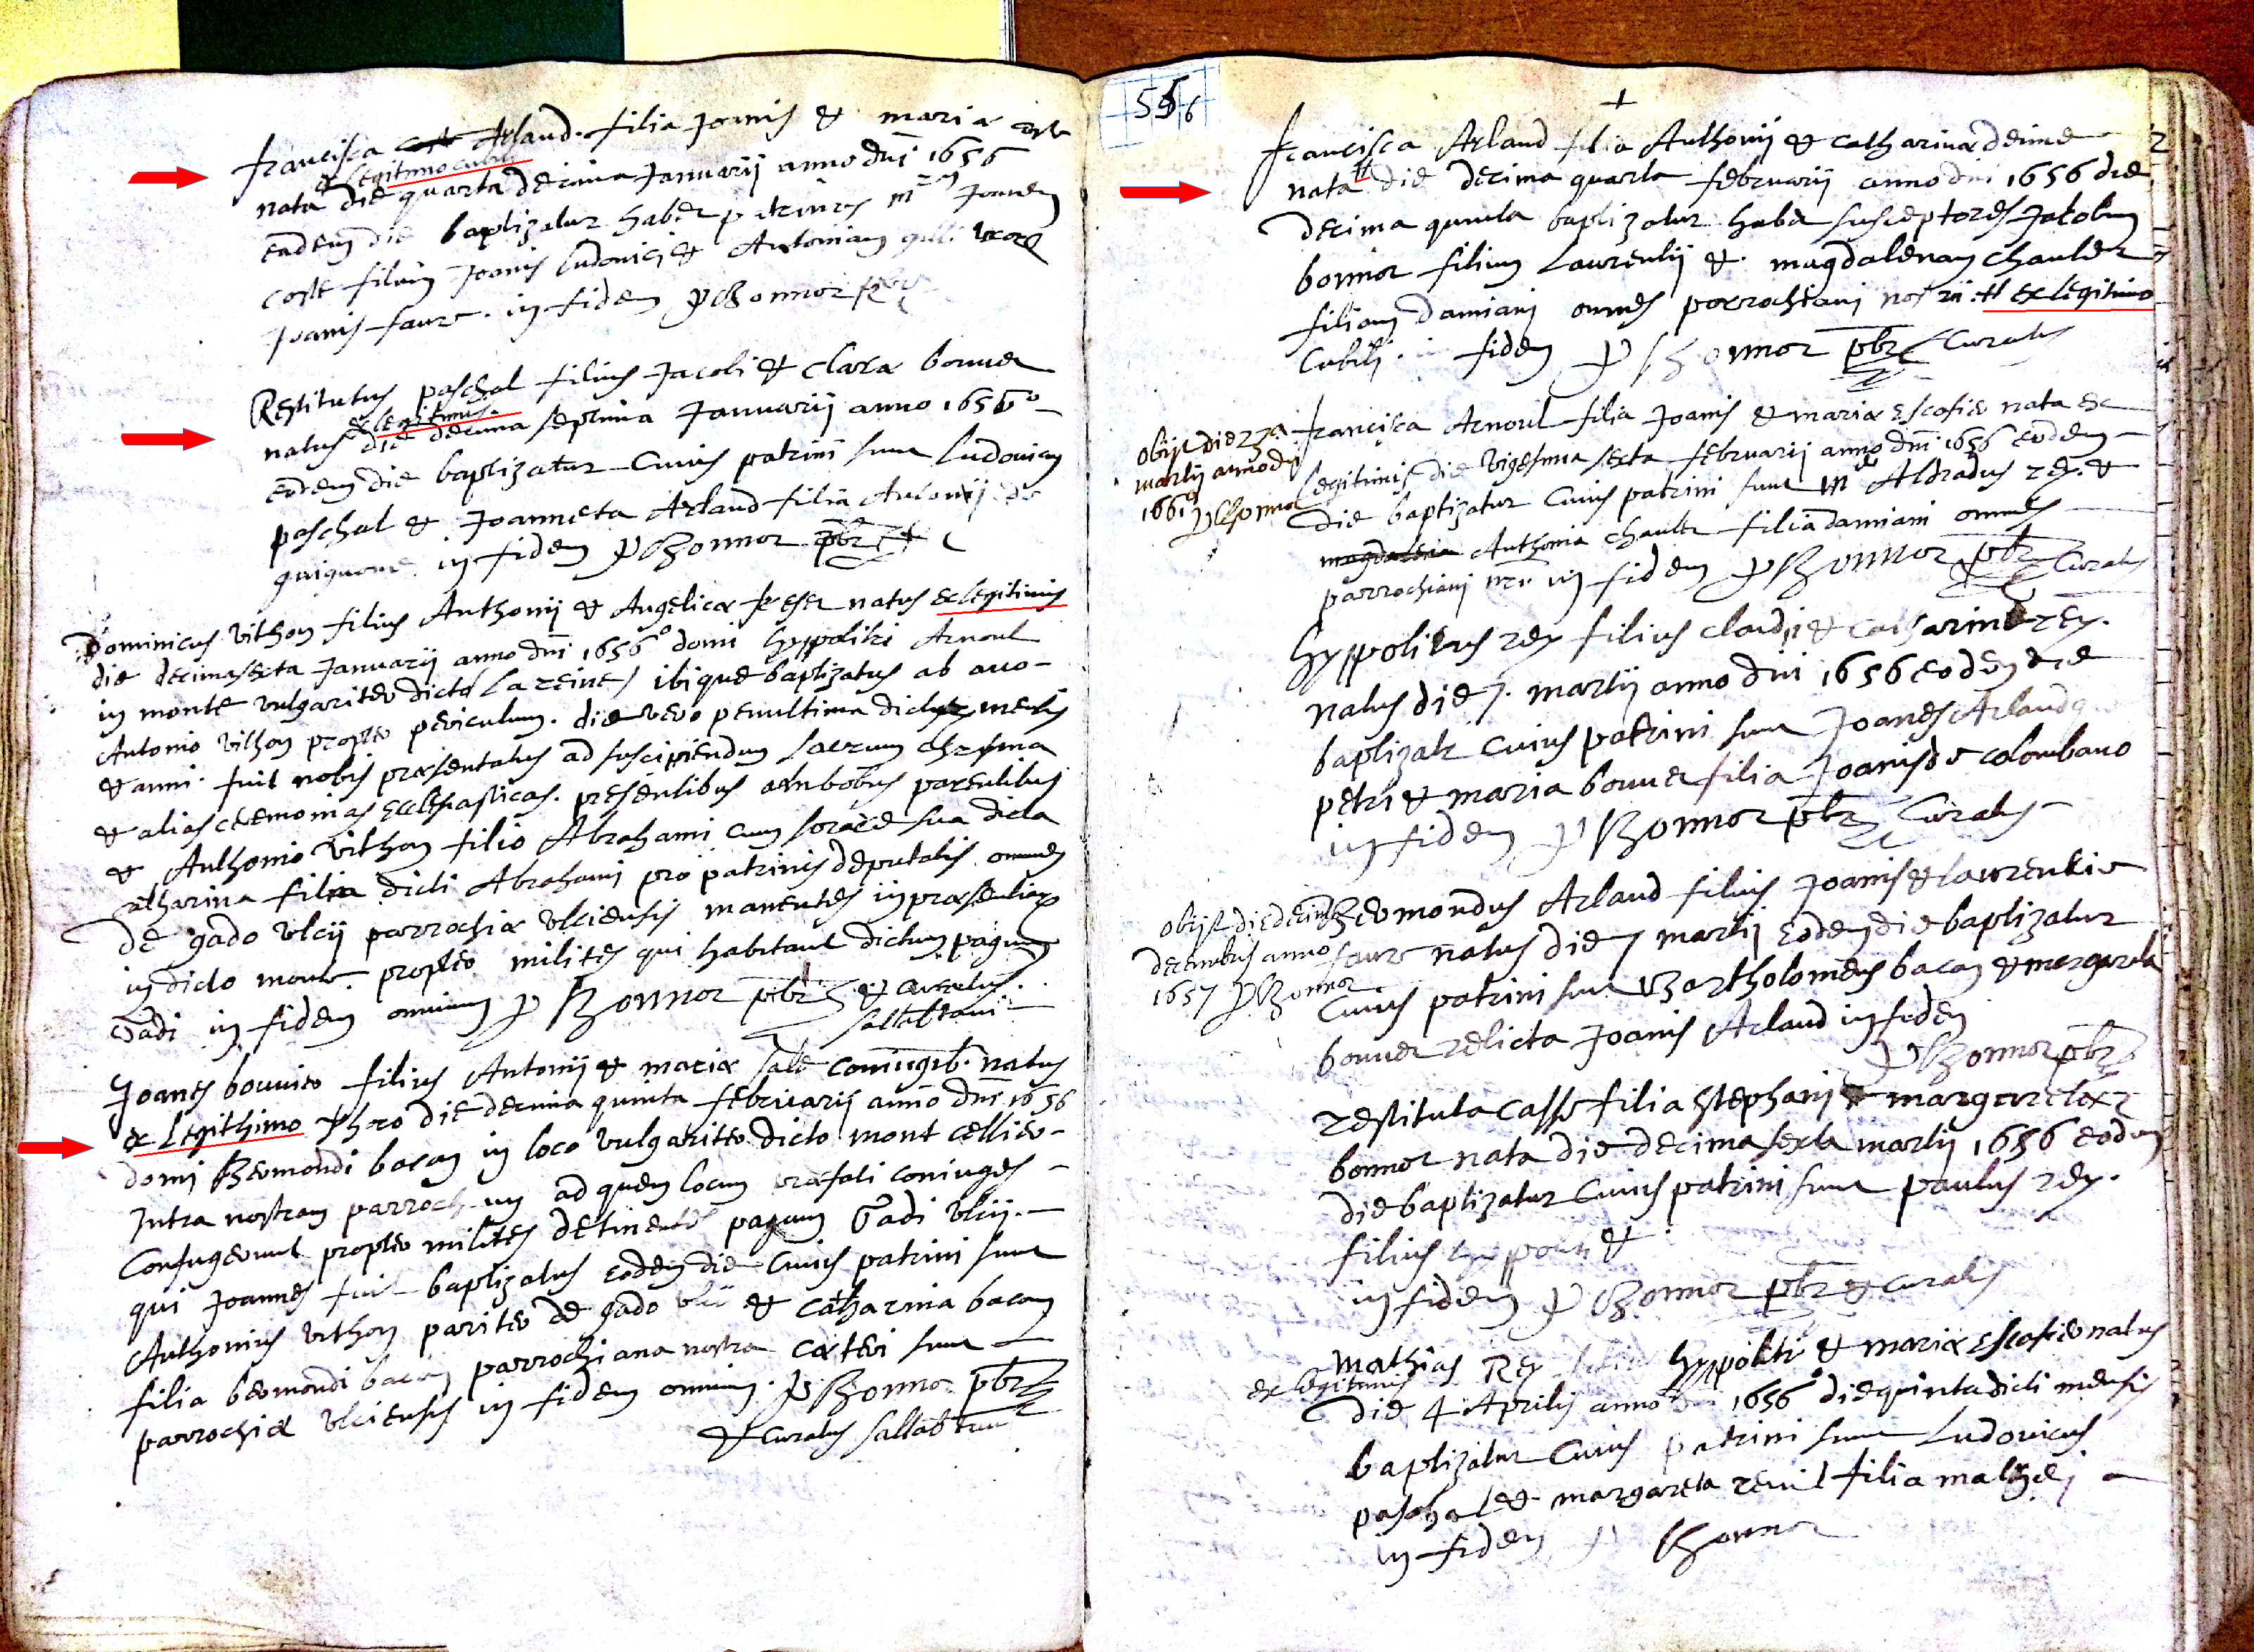 francisca Arland filia Joanis & maria
ex legitimo cubili
nata die quarta decima Januarij anno dni 1656
eadem die baptizatur habet patrinos Joanem
coste filium Joanis ludovici & Antoniam
Joanis faure. in fidem Bonnor
Restitutus paschal filius Jacobi & Clara bonnet
ex legitimis.
natus die decima septima Januarij anno 1656º
eodem die baptizatur Cuius patrini sunt Ludovicus
paschal & Joanneta Arland filia Antonij de
in fidem Bonnor pbr
Dominicus vithon filius Anthonij & Angelicæ natus ex legitimis
die decima sexta Januarij anno dni 1656º domi hyppoliti Arnoul
in monte vulgariter dicto La reine / ibique baptizatus ab avo
Antonio vithon propter periculum. die vero penultima dicti mensis
& anni. fuit nobis præsentatus ad suscipiendum sacrum chrisma
& alias ceremonias Ecclesiasticas. presentibus ambobus parentibus
& Anthonio vithon filio Abrahami cum sorore sua dicta
catharina filia dicti Abrahami pro patrinis deputatis omnes
de gado ulcij parrochiæ ulciensis manentes in præsentiar
in dicto monte propter milites qui habitant dictum pagum
Gadi in fidem omnium p Bonnor pbr & curatus
Joanes bouvier filius Antonij & mariæ coniugib. natus
ex legithimo thoro die decima quinta februarij anno dni 1656
domi Bermondi bacon in loco vulgariter dicto mont cellier
Intra nostram ad quem locum præfati coniuges
Confugerunt propter milites detinentes pagum Gadi ulcij.
qui Joannes fuit baptizatus eodem die Cuius patrini sunt
Anthonius vithon pariter de gado ulcij & catharina bacon
filia bermondi bacon parrochiana nostra cæteri sunt
parrochiæ ulciensis in fidem omnium. p Bonnor pbr
& Curatus
francisca Arland filia Anthonij & catharinæ deime
nata # die decima quarta februarij anno dni 1656 die
decima quinta baptizatur habet susceptores Jacobum
bonnor filium Laurentij & magdalenam chaulier
filiam damiani omnes parrochiani nostri # ex legitimo
Cubili. in fidem p Bonnor pbr Curatus
obijt die 27a
martij anno dni
1661
p Bonnor
francisca Arnoul filia Joanis & mariæ escofier nata ex
legitimis die vigesima sexta februarij anno dni 1656 eodem
die baptizatur Cuius patrini sunt Aldradus rey. &
magdalena Anthonia chaulier filia damiani omnes
parrochiani nri in fidem p Bonnor pbr Curatus
hyppolitus rey filius claudij & catharinæ rey.
natus die 7. martij anno dni 1656 eodem die
baptizatr Cuius patrini sunt Joanes Arland
petri & maria bonnet filia Joanis de colombano
in fidem p Bonnor pbr Curatus
obijt die decima
decembris anno
1657 p Bonnor
Bermondus Arland filius Joanis & laurentiæ
faure natus die 7 martij eodem die baptizatur
Cuius patrini sunt Bartholomeus bacon & margarita
bonnet relicta Joanis Arland in fidem
p Bonnor pbr
restituta casse filia stephani & margaretæ
bonnor nata die decima sexta martij 1656 eodem
die baptizatur Cuius patrini sunt paulus rey.
filius &
in fidem p Bonnor pbr & curatus
mathias Rey filius hyppoliti & mariæ escofier natus
ex legitimis
die 4 Aprilis anno dni 1656º die quinta dicti mensis
baptizatur Cuius patrini sunt Ludovicus
paschal & margareta filia mathei
in fidem p Bonnor